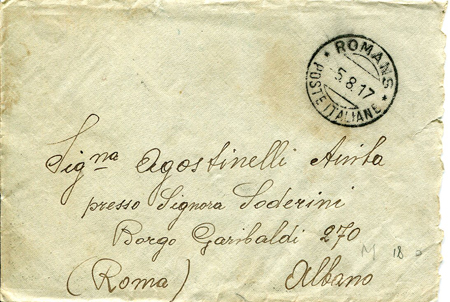 ROMANS
-5.8.17
POSTE ITALIANE
Signa Agostinelli Anita
presso Signora Soderini
Borgo Garibaldi 270
(Roma) Albano